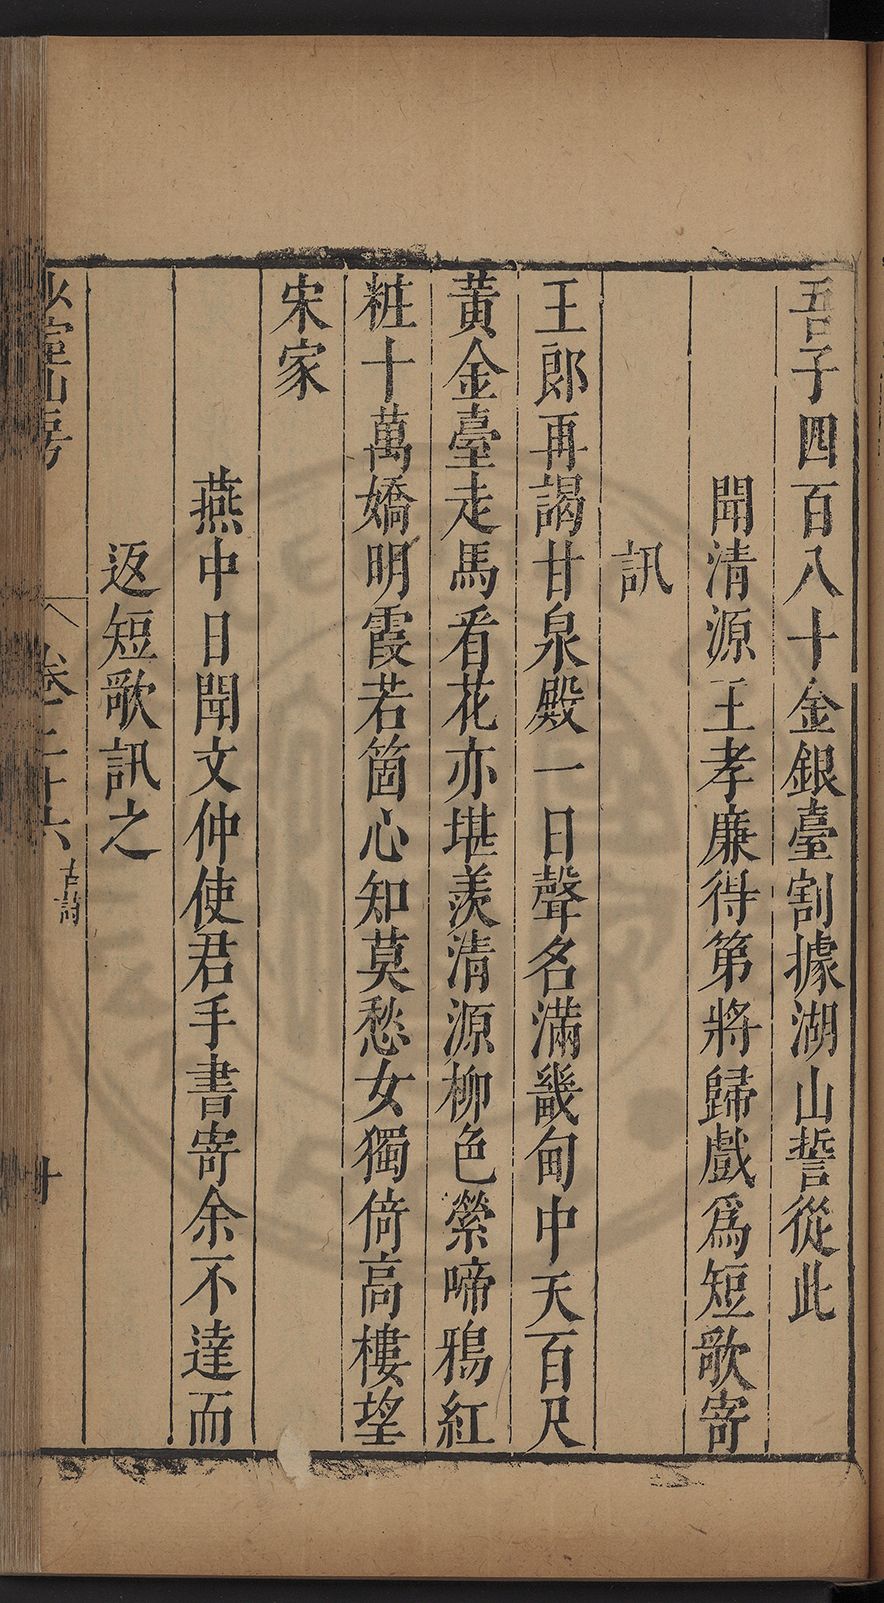 吾子四百八十金銀臺割據湖山誓從此
聞清源王孝廉得第將歸戲爲短歌寄
訊
王郎再謁甘泉殿一日聲名滿畿甸中天百尺
黃金臺走馬看花亦堪羨清源柳色縈啼鴉紅
粧十萬嬌明霞若箇心知莫愁女獨倚高樓望
宋家
燕中日聞文仲使君手書寄余不達而
返短歌訊之
山房
卷二十六
古詩
十